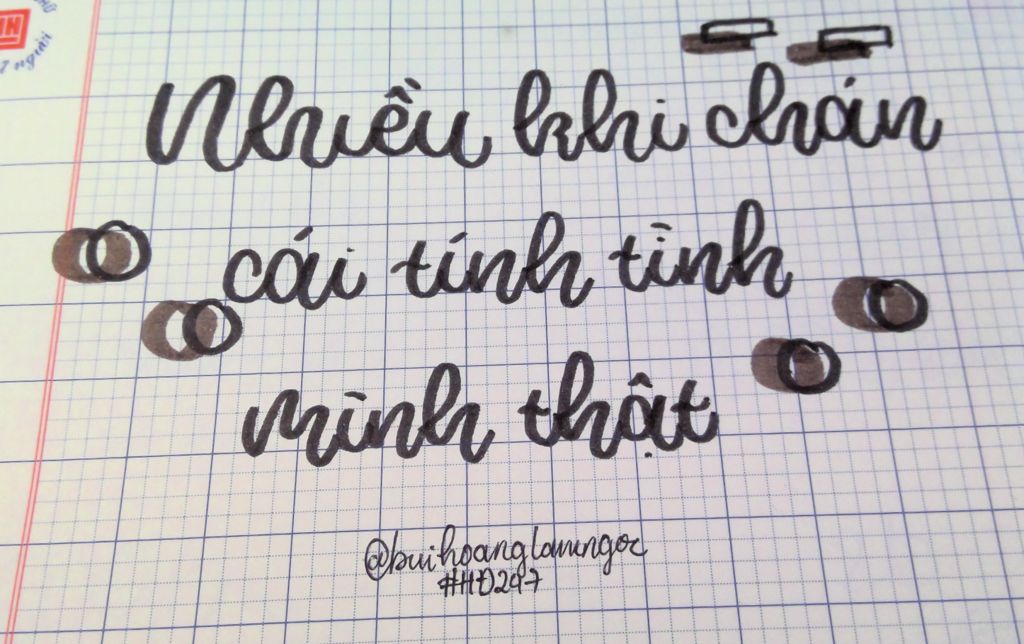 Nhiều khi chán
cái tính tình
mình thật
@buihoanglamngoc
#HD247